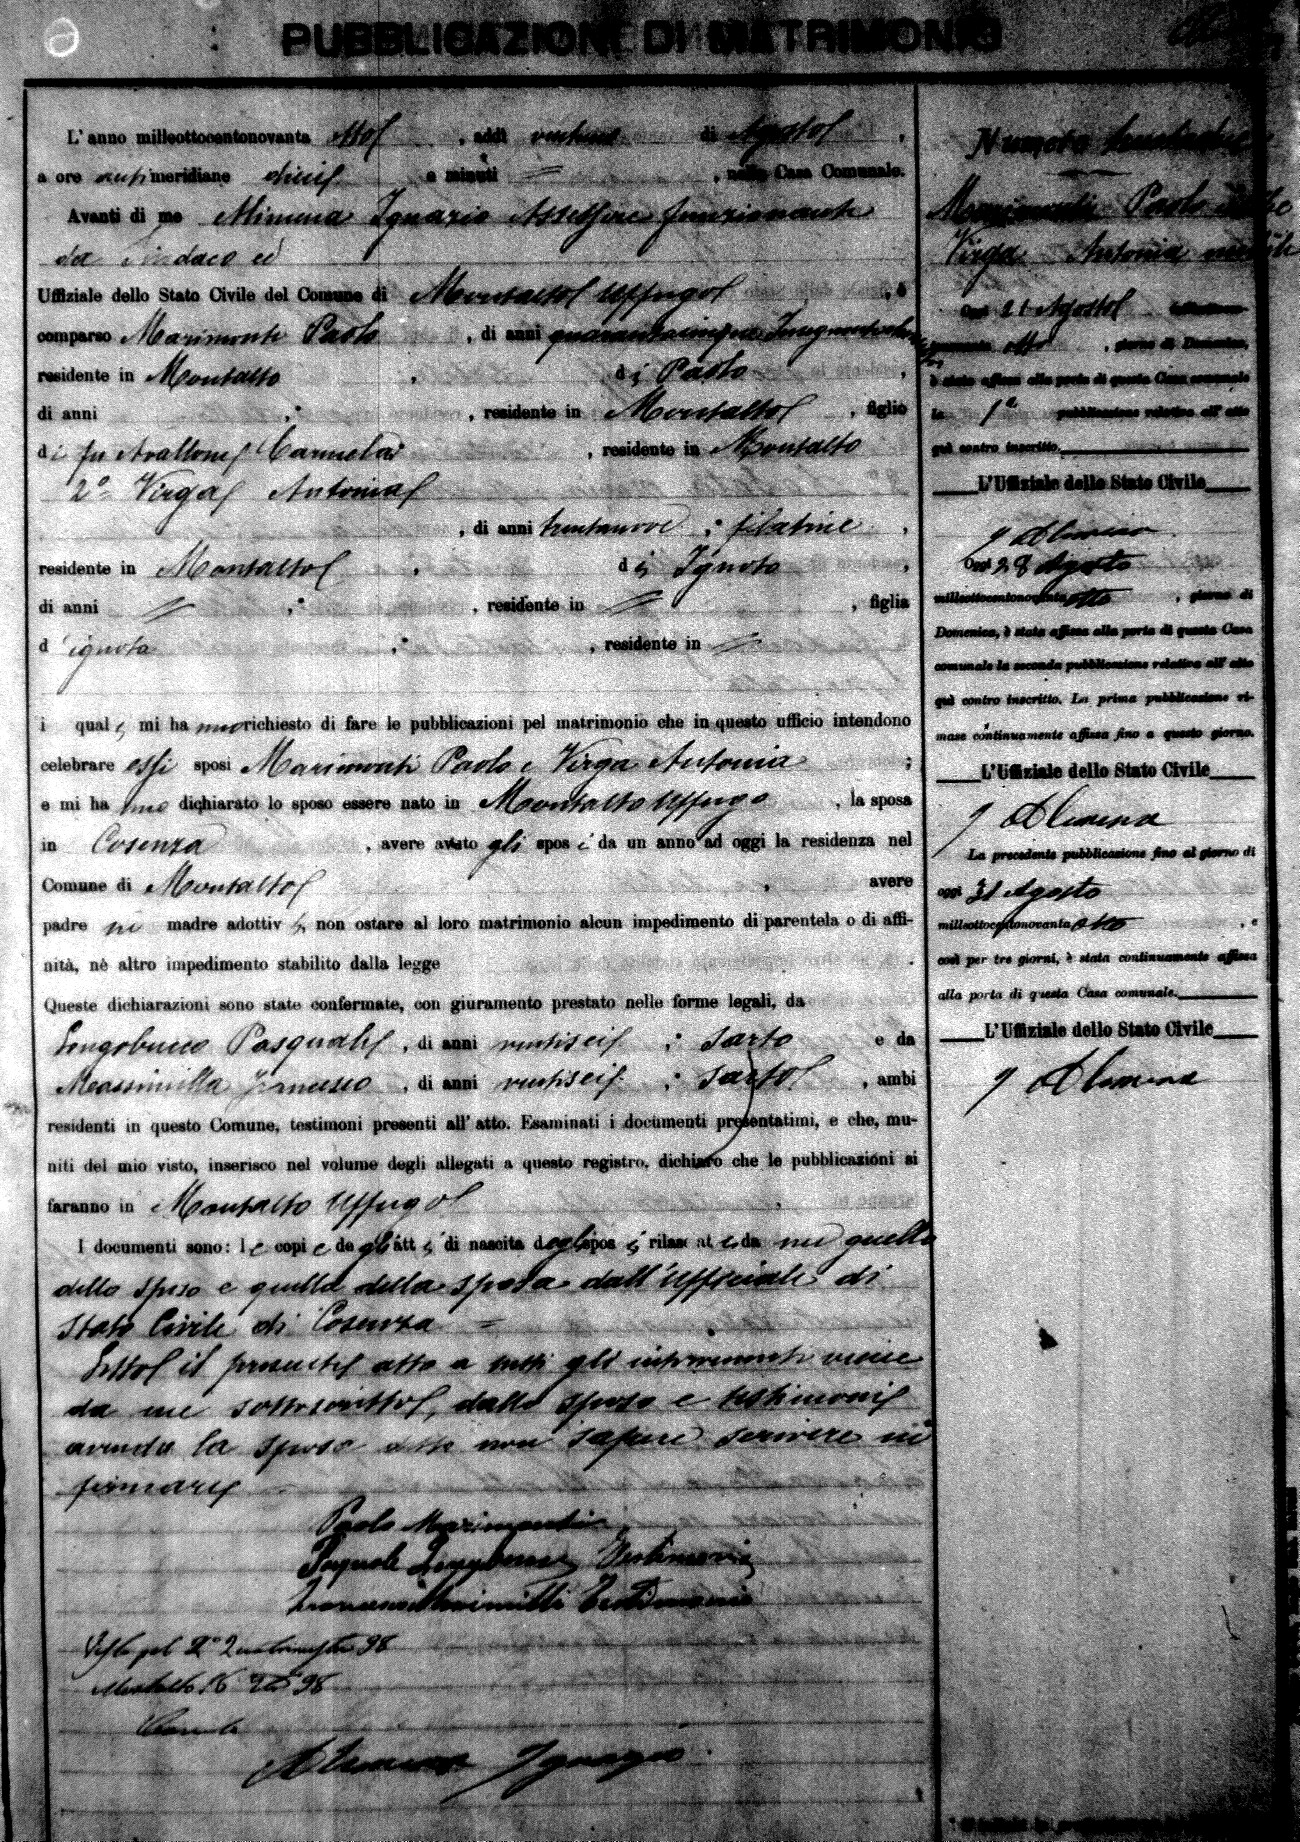 PUBBLICAZIONI DI MATRIMONIO
L'anno milleottocentonovanta otto, addì ventuno di Agosto,
a ore antimeridiane dieci e minuti =, nella Casa Comunale.
Avanti di me Alimena Ignazio Assessore funzionante
da Sindaco ed
Uffiziale dello Stato Civile del Comune di Montalto Uffugo, è
comparso Marimonti Paolo, di anni quarantacinque Insegnante
residente in Montalto di Paolo,
di anni , residente in Montalto, figlio
di fu Avallone Carmela, residente in Montalto
2° Virga Antonia
, di anni trentanove; filatrice,
residente in Montalto di Ignoto,
di anni = ; , residente in =, figlia
d ignota , residente in =
i quali mi hanno richiesto di fare le pubblicazioni pel matrimonio che in questo ufficio intendono
celebrare essi sposi Marimonti Paolo e Virga Antonia;
e mi hanno dichiarato lo sposo essere nato in Montalto Uffugo, la sposa
in Cosenza, avere avuto gli sposi da un anno ad oggi la residenza nel
Comune di Montalto, avere
padre ni madre adottivi, non ostare al loro matrimonio alcun impedimento di parentela o di affi-
nità, nè altro impedimento stabilito dalla legge.
Queste dichiarazioni sono state confermate, con giuramento prestato nelle forme legali, da
Longobucco Pasquale, di anni ventisei; sarto e da
Massimilla Francesco, di anni ventisei; sarto, ambi
residenti in questo Comune, testimoni presenti all'atto. Esaminati i documenti presentatimi, e che, mu-
niti del mio visto, inserisco nel volume degli allegati a questo registro, dichiaro che le pubblicazioni si
faranno in Montalto Uffugo
I documenti sono: le copie degli atti di nascita degli sposi rilasciate da me quella
dello sposo e quella della sposa dall'Uffiziale di
Stato Civile di Cosenza =
Letto il presente atto a tutti gli intervenuti viene
da me sottoscritto, dallo sposo e testimoni
avendo la sposa detto non sapere scrivere ni
firmare
Paolo Marimonti
Pasquale Longobucco Testimonio
Francesco Massimilla Testimonio
Visto pel 2° Quadrimestre 98
Montalto 98
Alimena Ignazio
Numero
Marimonti Paolo
Virga Antonia nubile
Oggi 21 Agosto milleottocento-
novanta otto, giorno di Domenica,
è stata affissa alla porta di questa Casa comunale
la 1a pubblicazione relativa all'atto
quì contro inscritto.
L'Uffiziale dello Stato Civile
I Alimena
Oggi 28 Agosto
milleottocentonovanta otto, giorno di
Domenica, è stata affissa alla porta di questa Casa
comunale la seconda pubblicazione relativa all'atto
quì contro inscritto. La prima pubblicazione ri-
mase continuamente affissa fino a questo giorno.
L'Uffiziale dello Stato Civile
I Alimena
La precedente pubblicazione fino al giorno di
oggi 31 Agosto
milleottocentonovanta otto, e
così per tre giorni, è stata continuamente affissa
alla porta di questa Casa comunale.
L'Uffiziale dello Stato Civile
I Alimena